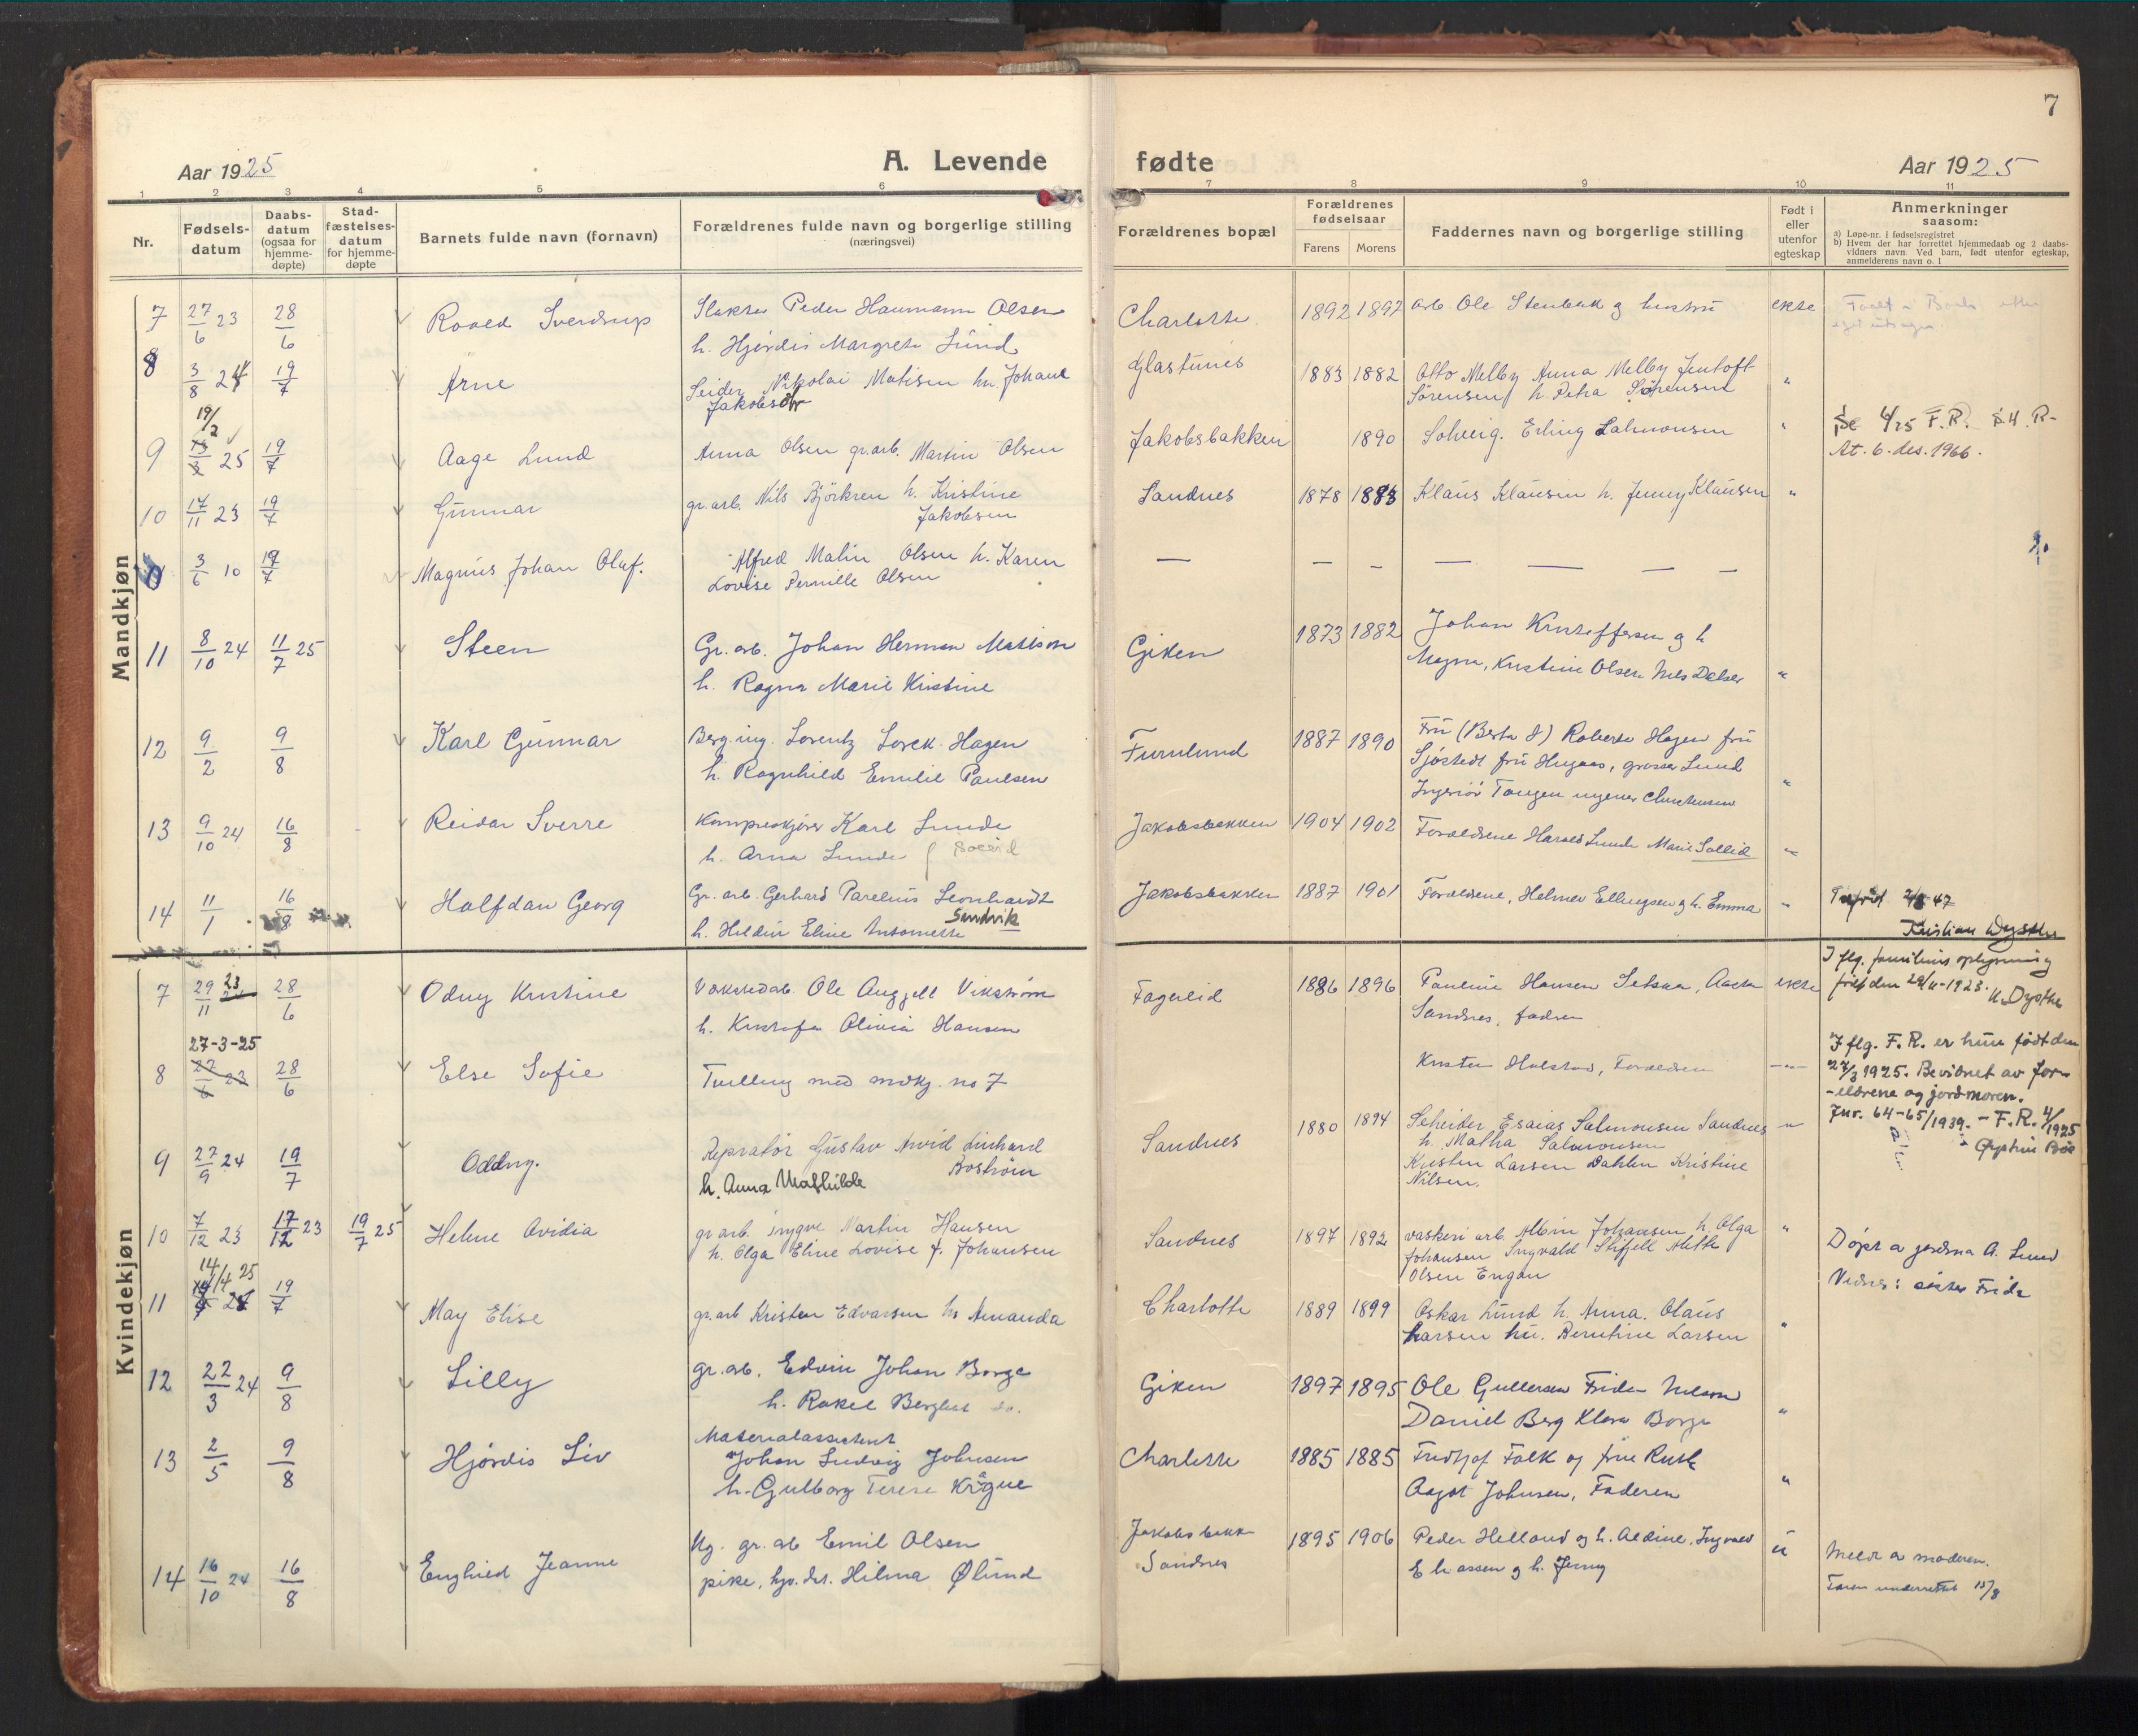 7
Aar 1925
A. Levende
fødte
Aar 1925
1 2 3 4 5 6 7 8 9 10 11
Nr.
Fødsels-
datum
Daabs-
datum
(ogsaa for
hjemme-
døpte)
Stad-
fæstelses-
datum
for hjemme-
døpte
Barnets fulde navn (fornavn)
Forældrenes fulde navn og borgerlige stilling
(næringsvei)
Forældrenes bopæl
Forældrenes
fødselsaar
Farens Morens
Faddernes navn og borgerlige stilling
Født i
eller
utenfor
egteskap
Anmerkninger
saasom:
a) Løpe-nr. i fødselsregistret
b) Hvem der har forrettet hjemmedaab og 2 daabs-
vidners navn. Ved barn, født utenfor egteskap,
anmelderens navn o. l
Mandkjøn
7 27/6 23 28/6 Roald Sverdrup Slakter Peder Haumann Olsen Charlotte 1892 1897 arb. Ole Stenbak g hustru ekte
h. Hjørdis Margrete Lund
8 3/8 24 19/7 Arne Seider Nikolai Matisen hu. Johane Glastunes 1883 1882 Otto Melby Anna Melby Jentoft "
Jakobsen Sørensen h. Petra Sørensen
19/2
9 25 19/7 Aage Lund Anna Olsen gr.arb. Martin Olsen Jakobsbakken 1890 Solveig. Erling Salmonsen " 4/25 F.R.
At. 6. des. 1966.
10 17/11 23 19/7 Gunnar gr.arb. Nils Björkren h. Kristine Sandnes 1878 1883 Klaus Klausen h. Jenny Klausen "
Jakobsen
3/6 10 19/7 Magnus Johan Oluf. Alfred Malin Olsen h. Karen — — — — — — —
Lovise Pernille Olsen
11 8/10 24 11/7 25 Steen Gr. arb. Johan Herman Matison Giken 1873 1882 Johan Kristoffersen g h
h. Ragna Marie Kristine Magna, Kristine Olsen Nels "
12 9/2 9/8 Karl Gunnar Berg.ing. Lorentz Lorck Hagen Furulund 1887 1890 Fru (Berta H) Roberta Hagen fru
h. Ragnhild Emilie Paulsen Sjöstedt fru Hugaas, grosse Lund
Ingeniör Tangen "
13 9/10 24 16/8 Reidar Sverre Karl Lunde Jakobsbakken 1904 1902 Foreldrene Harald Lunde Marie Sollid "
h. Arna Lunde
14 11/1 16/8 Halfdan Georg Gr. arb. Gerhard Parelius Leonhardt Jakobsbakken 1887 1901 Foreldrene, Helmer Ellingsen g h. Emma "
Sandvik
h. Eline
Kvindekjøn
7 29/11 23 28/6 Odny Kristine Ole Vikstrøm Fagerlid 1886 1896 Pauline Hansen ekte I flg. familiens oplysning
h. Olivia Hansen Sandnes, født den 29/11-1923. K. Dysthe
27-3-25
8 22/6 23 28/6 Else Sofie Tvilling med mdkj. no 7 I flg. F. R. er hun født den
27/3 1925. Bevidnet av for-
-eldrene og jordmoren.
Jnr. 64-65/1939. - F.R. 4/1925
9 27/9 24 19/7 Oddny. Gustav Arvid Linhard Sandnes 1880 1894 Scheider Esaias Salmonsen Sandnes "
Boström h. Matha Salmonsen
h. Anna Mathilde Kristen Larsen Dahlen Kristine
Nilsen.
10 7/12 23 17/12 23 19/7 25 Helene Ovidia gr arb. Yngve Martin Hansen Sandnes 1897 1892 vaskeri arb. Albin Johansen h. Olga "
h. Olga Eline Lovise f. Johansen Johansen Ingvald Alette
Olsen Engan
Døpt a jordma A. Lund
Vidner: søster Frida
14/4 25
11 19/7 May Elise gr. arb Kristen Edvarsen hu Amanda Charlotte 1889 1899 Oskar Lund h. Anna. Olaus
Larsen hu. Berntine Larsen "
12 22/3 24 9/8 Lilly gr. arb. Edvin Johan Borge Giken 1897 1895 Ole Gullersen Frida
h. Rakel Daniel Berg Klara Borge "
13 2/5 9/8 Hjørdis Liv Materialassistent
Johan Ludvig Johnsen Charlotte 1885 1885 Fridtjof Falk og frue Ruth
h. Gulborg Terese Krågue Aagot Johnsen, Faderen "
14 16/10 24 16/8 Engfried Jeanne Ug. gr. arb Emil Olsen Jakobsbakk 1895 1906 Peder Helland og h. Aldine, Ingvald u Meldt a moderen.
pike, Hilma Ølund Sandnes g h. Jenny Faren underrettet 15/8